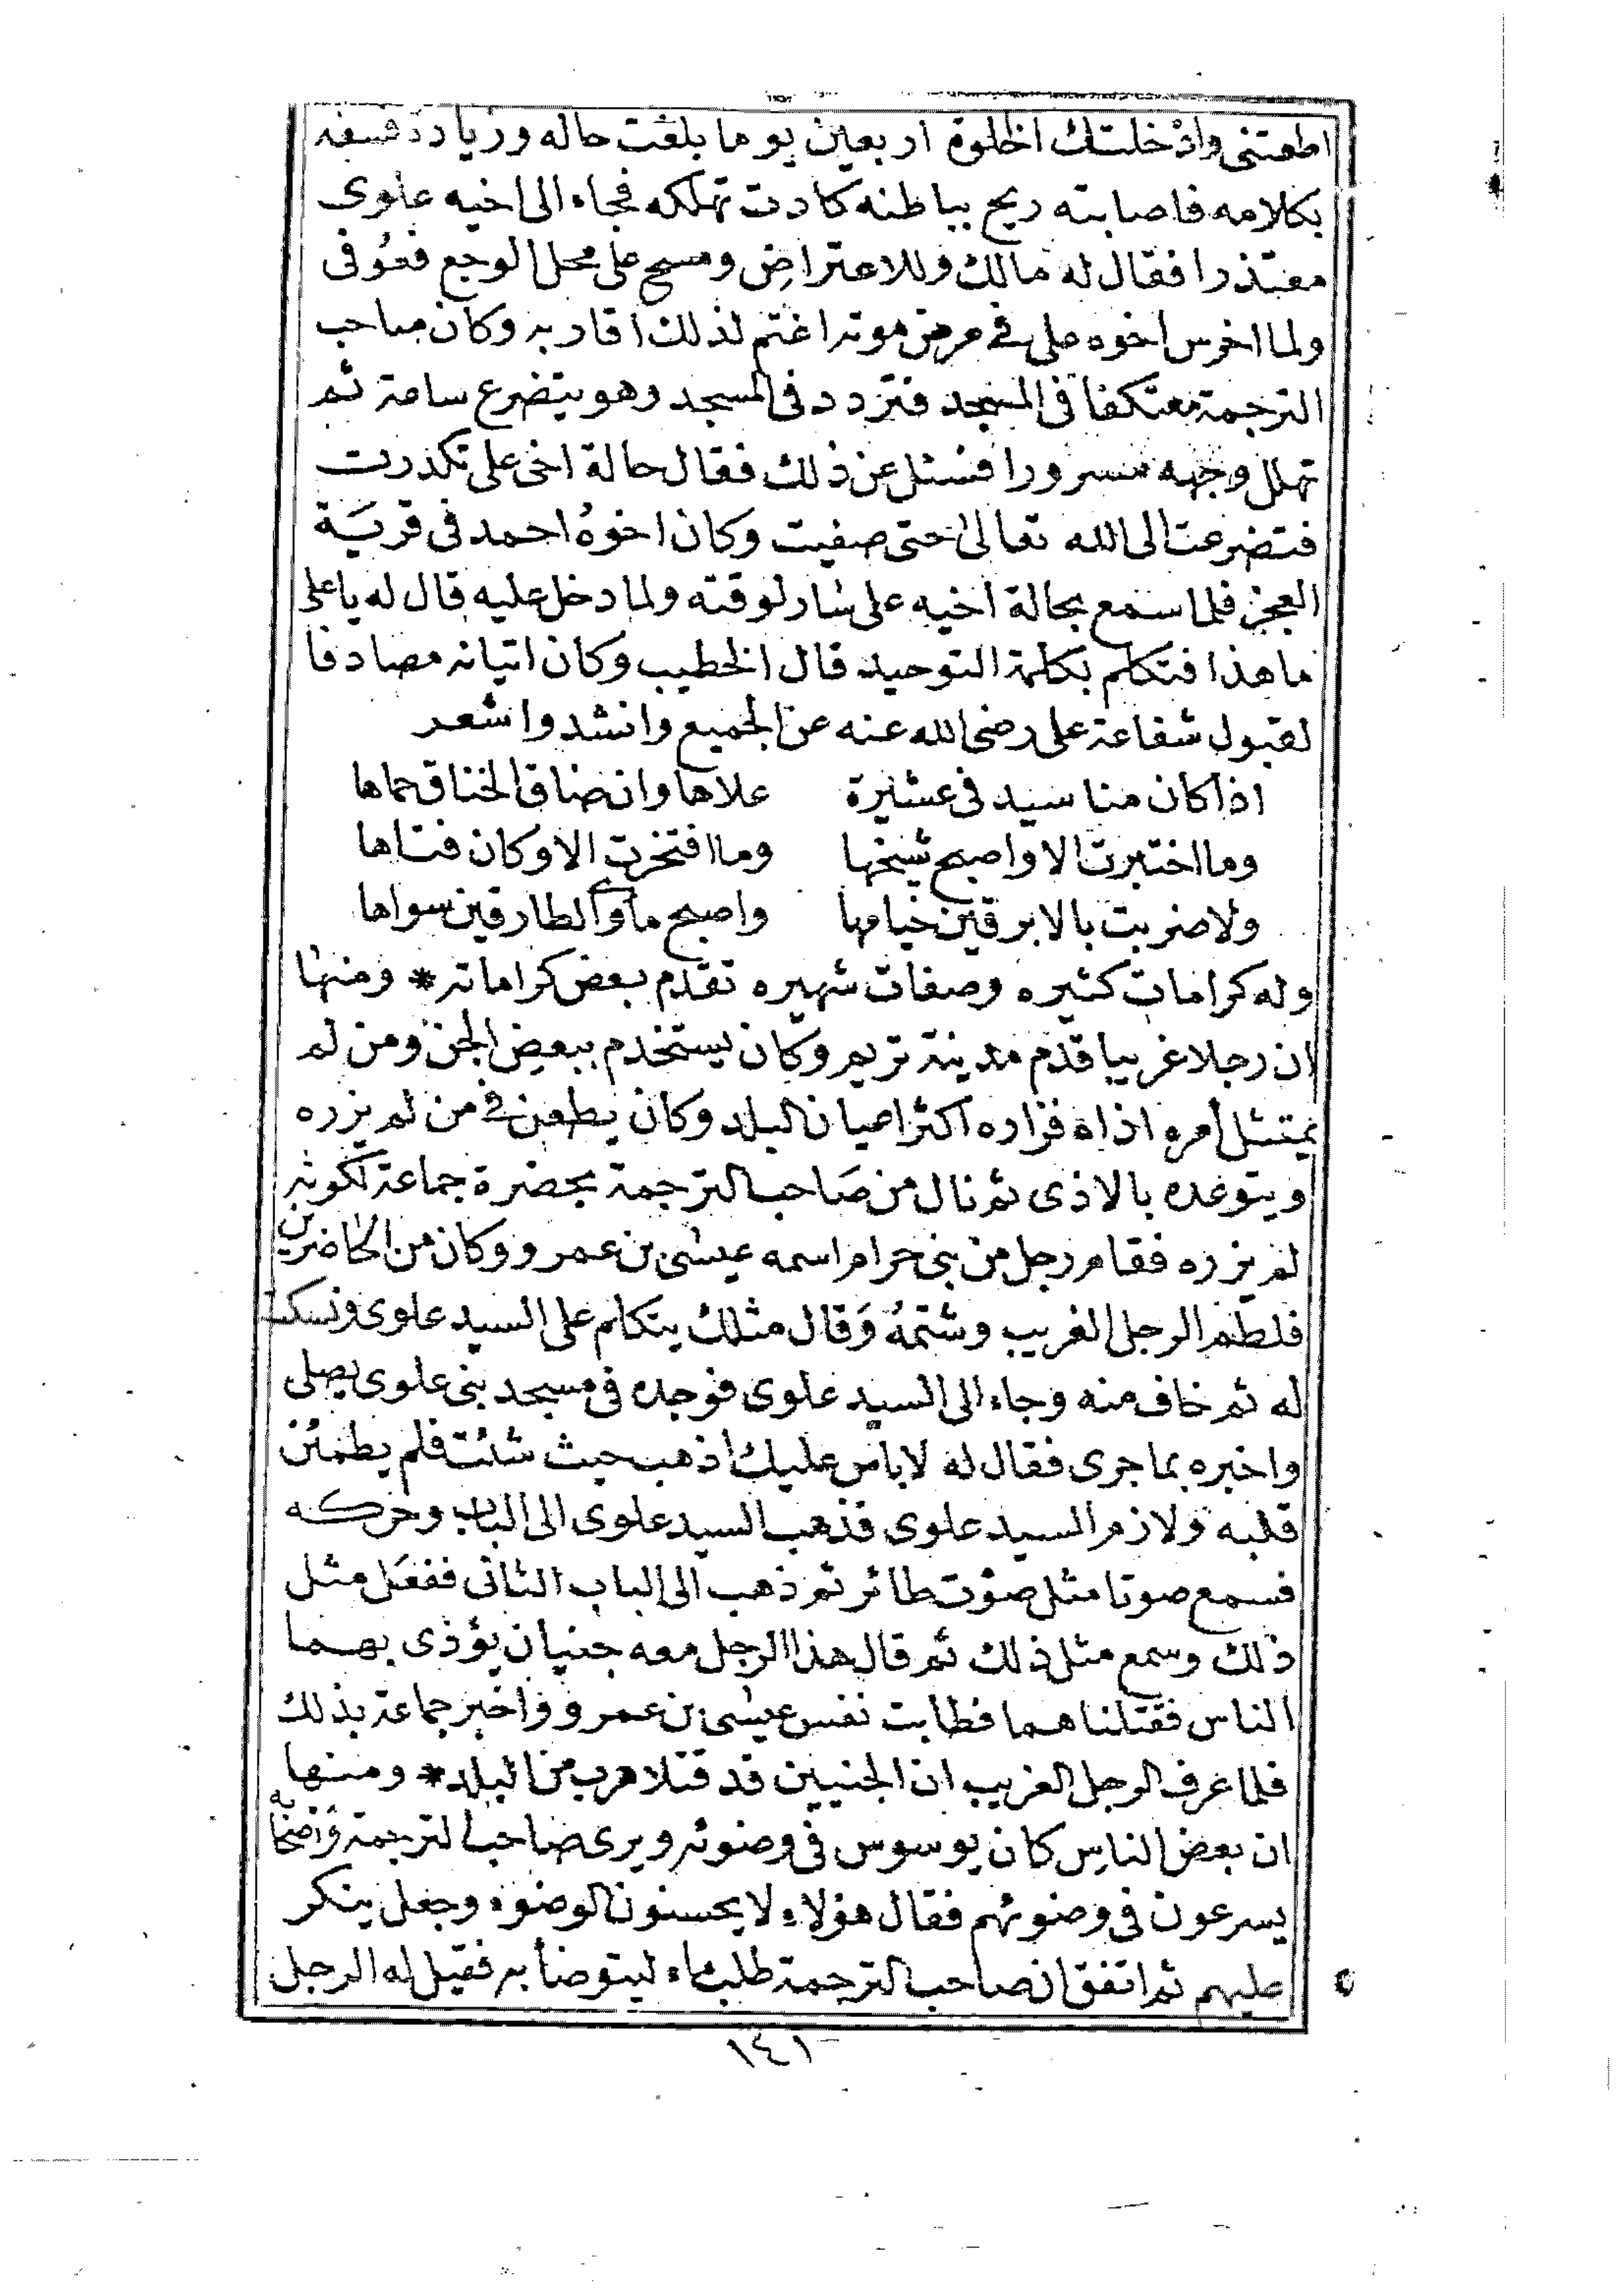 اطعتنى وادخلتك الخلوة اربعين يوما بلغت حاله وزيادة فسفه
بكلامه فاصابته ريح بباطنه كادت تهلكه فجاء الى اخيه علوى
معتذرا فقال له مالك وللاعتراض ومسح على محل الوجع فعوفى
ولما اخرس اخوه على فى مرض موته اغتم لذلك اقاربه وكان صاحب
الترجمة معتكفا فى المسجد فتردد فى المسجد وهو يتضرع ساعة ثم
تهلل وجهه سرورا فسئل عن ذلك فقال حالة اخى على تكدرت
فتضرعت الى الله تعالى حتى صفيت وكان اخوه احمد فى قرية
العجز فلما سمع بحالة اخيه على سار لوقته ولما دخل عليه قال له يا على
ما هذا فتكلم بكلمة التوحيد قال الخطيب وكان اتيانه مصادفا
لقبول شفاعة على رضى الله عنه عن الجميع وانشدوا شعر
اذا كان منا سيد فى عشيرة علاها وان ضاق الخناق حماها
وما اختبرت الا واصبح شيخها وما افتخرت الا وكان فتاها
ولا ضربت بالابرقين خيامها واصبح مأوى الطارقين سواها
وله كرامات كثيره وصفات شهيره تقدم بعض كراماته * ومنها
ان رجلا غريبا قدم مدينة تريم وكان يستخدم ببعض الجن ومن لم
يمتثل أمره اذاه فزاره اكثر اعيان البلد وكان يطعن فى من لم يزره
ويتوعده بالاذى ثم نال من صاحب الترجمة بحضرة جماعة لكونه
لم يزره فقام رجل من بنى حرام اسمه عيسى بن عمرو وكان من الحاضرين
فلطم الرجل الغريب وشتمه وقال مثلك يتكلم على السيد علوى فسكت
له ثم خاف منه وجاء الى السيد علوى فوجده فى مسجد بنى علوى يصلى
واخبره بما جرى فقال له لا بأس عليك اذهب حيث شئت فلم يطمئن
قلبه ولازم السيد علوى فذهب السيد علوى الى الباب وحركه
فسمع صوتا مثل صوت طائر ثم ذهب الى الباب الثانى ففعل مثل
ذلك وسمع مثل ذلك ثم قال هذا الرجل معه جنيان يؤذى بهما
الناس فقتلناهما فطابت نفس عيسى بن عمرو واخبر جماعة بذلك
فلما عرف الرجل الغريب ان الجنيين قد قتلا هرب من البلد * ومنها
ان بعض الناس كان يوسوس فى وضوئه ويرى صاحب الترجمة واصحابه
يسرعون فى وضوئهم فقال هؤلاء لا يحسنون الوضوء وجعل ينكر
عليهم ثم اتفق ان صاحب الترجمة طلب ماء ليتوضأ به فقيل له الرجل
١٤١